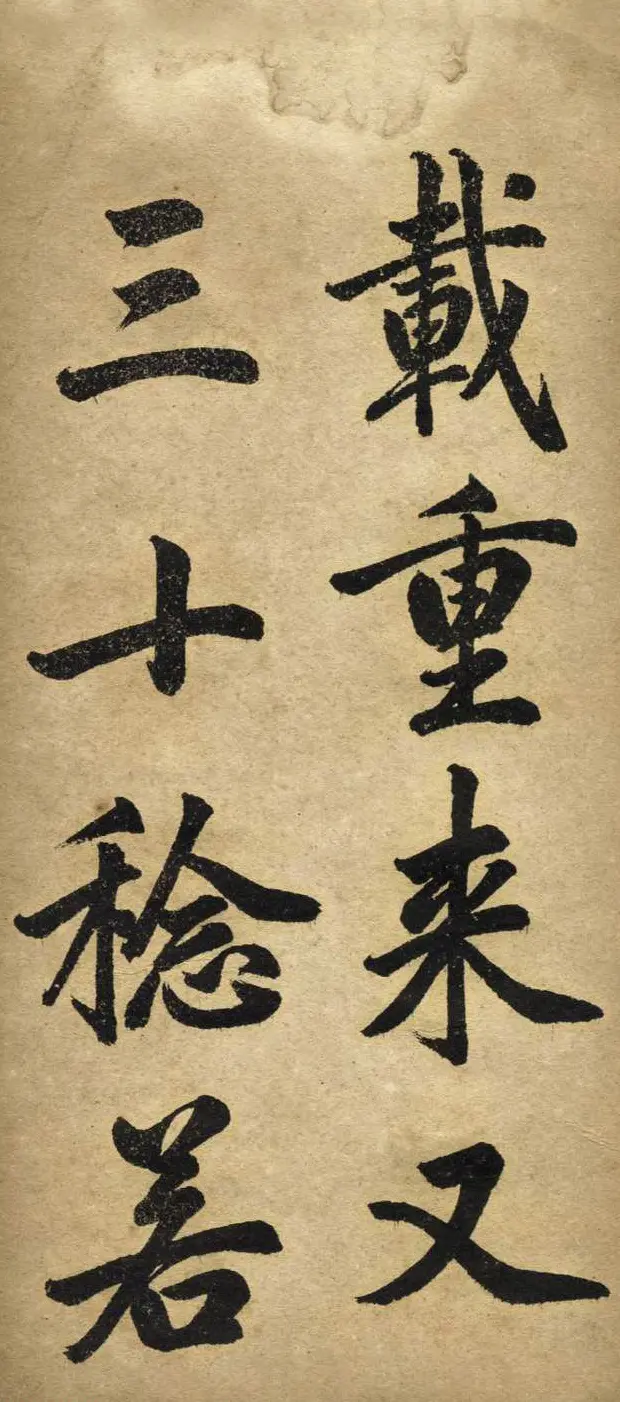 載重来又
三十稔若